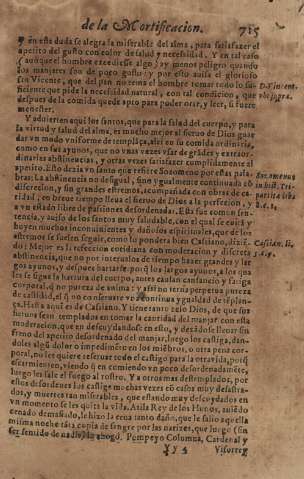 de la Mortificacion. 715
y en esta duda se alegra la miserable del alma, para satisfazer el
apetito del gusto con color de salud y necessidad. Y en tal caso
(aunque el hombre excediesse algo) ay menos peligro quando
los manjares son de poco gusto: y por esto ausa el glorioso
san Vicente, que del pan no tema el hombre tomar todo lo su-
ficiente que pide la necessidad natural, con tal condicion, que
despues de la comida quede apto para poder orar, y leer, si fuere
menester.
D. Vincent.
Y aduierten aqui los santos, que para la salud del cuerpo, y para
la virtud y salud del alma, es mucho mejor al sieruo de Dios guar
dar vn modo vniforme de templãça, assi en su comida ordinaria,
como en sus ayunos, que no vnas vezes vsar de grãdes y extraor-
dinarias abstinencias, y otras vezes satisfazer cumplidamente el
apetito. Esto dezia vn santo que refiere Sozomeno por estas pala-
bras: La abstinencia no desigual, sino ygualmente continuada cõ
discrecion, y sin grandes estremos, acompañada con obras de ca-
ridad, en breue tiempo lleua el sieruo de Dios a la perfecion, y
a vn estado libre de passiones desordenadas. Esta fue comun sen-
tencia, y auiso de los santos muy saludable, con el qual se euita y
huyen muchos inconuinientes y daños espirituales, que de los
estremos se suelen seguir, como lo pondera bien Cassiano, dizie-
do: Mejor es la refeccion cotidiana con moderacion y discreta
abstinencia, que no por interualos de tiempo hazer grandes y lar
gos ayunos, y despues hartarse: porq̃ los largos ayunos, a los qua
les se sigue la hartura del cuerpo, antes causan cansancio y fatiga
corporal, q̃ no pureza de anima
de castidad, el q̃ no conseruare vna continua ygualdad de tẽplan-
ça. Hasta aqui es de Cassiano. Y tiene tanto zelo Dios, de que sus
sieruos sean templados en tomar la cantidad del manjar con esta
moderacion, que en descuydandose en esto, y dexãdose lleuar sin
freno del apetito desordenado del manjar, luego los castiga, dan-
doles algũ dolor o impedimẽto en los miẽbros, o otra pena cor-
poral, no les quiere reseruar todo el castigo para la otra vida, porq̃
escarmienten, viendo q̃ en comiendo vn poco desordenadamẽte,
luego les sale el fuego al rostro. Y a otros mas destemplados, por
estos desordenes los castiga muchas vezes cõ casos muy desastra-
dos, y muertes tan miserables, que estando muy descuydados en
vn momento se les quita la vida. Atila Rey de los Hunos, auiẽdo
cenado demasiado, le hizo la cena tanto daño, que le salio aquella
misma noche tãta copia de sangre por las narizes, que luego (sin
ser sentido de nadie) le ahogò. Pompeyo Columna, Cardenal y
Yy 4 Visorrey